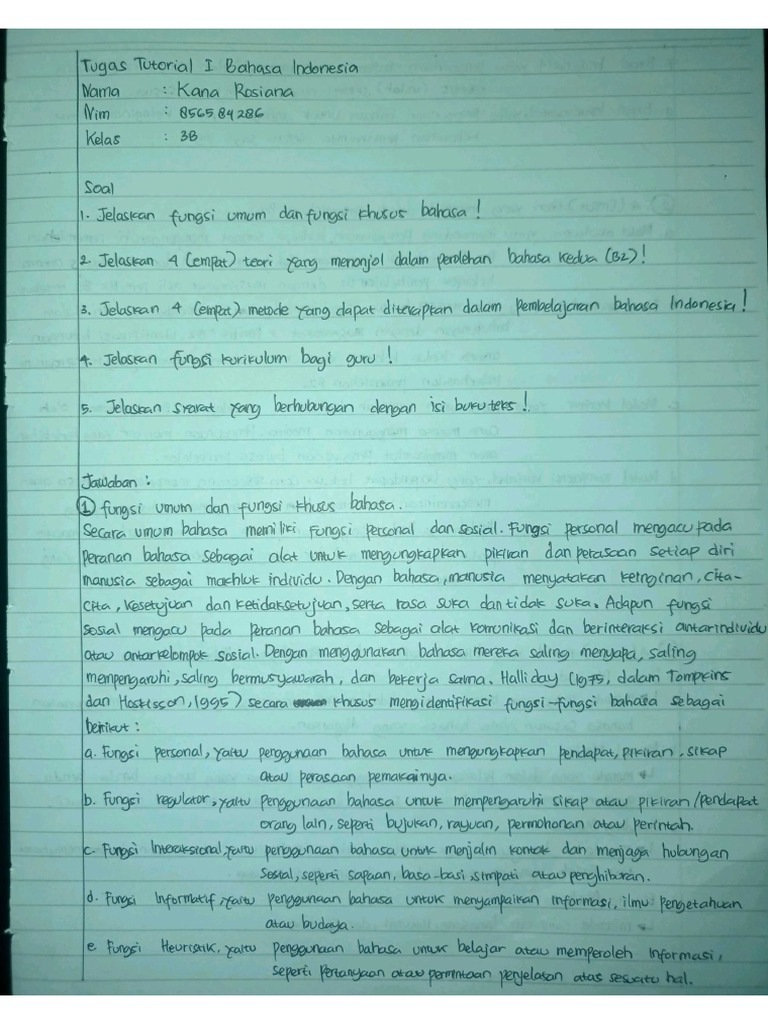 Tugas Tutorial I Bahasa Indonesia
Nama : Kana Rosiana
Nim : 856584286
Kelas : 3B
Soal
1. Jelaskan fungsi umum dan fungsi khusus bahasa!
2. Jelaskan 4 (empat) teori yang menonjol dalam perolehan bahasa kedua (B2)!
3. Jelaskan 4 (empat) metode yang dapat diterapkan dalam pembelajaran bahasa Indonesia!
4. Jelaskan fungsi kurikulum bagi guru!
5. Jelaskan syarat yang berhubungan dengan isi buku teks!
Jawaban :
1 fungsi umum dan fungsi khusus bahasa.
Secara umum bahasa memiliki fungsi personal dan sosial. Fungsi personal mengacu pada
peranan bahasa sebagai alat untuk mengungkapkan pikiran dan perasaan setiap diri
manusia sebagai makhluk individu. Dengan bahasa, manusia menyatakan keinginan, cita-
cita, kesetujuan dan ketidaksetujuan, serta rasa suka dan tidak suka. Adapun fungsi
sosial mengacu pada peranan bahasa sebagai alat komunikasi dan berinteraksi antarindividu
atau antarkelompok sosial. Dengan menggunakan bahasa mereka saling menyapa, saling
mempengaruhi, saling bermusyawarah, dan bekerja sama. Halliday (1975, dalam Tompkins
dan Hoskisson, 1995) secara khusus mengidentifikasi fungsi-fungsi bahasa sebagai
berikut :
a. Fungsi personal, yaitu penggunaan bahasa untuk mengungkapkan pendapat, pikiran, sikap
atau perasaan pemakainya.
b. Fungsi regulator, yaitu penggunaan bahasa untuk mempengaruhi sikap atau pikiran/pendapat
orang lain, seperti bujukan, rayuan, permohonan atau perintah.
c. Fungsi Interaksional, yaitu penggunaan bahasa untuk menjalin kontak dan menjaga hubungan
sosial, seperti sapaan, basa-basi, simpati atau penghiburan.
d. Fungsi Informatif, yaitu penggunaan bahasa untuk menyampaikan informasi, ilmu pengetahuan
atau budaya.
e Fungsi Heuristik, yaitu penggunaan bahasa untuk belajar atau memperoleh informasi,
seperti pertanyaan atau permintaan penjelasan atas sesuatu hal.